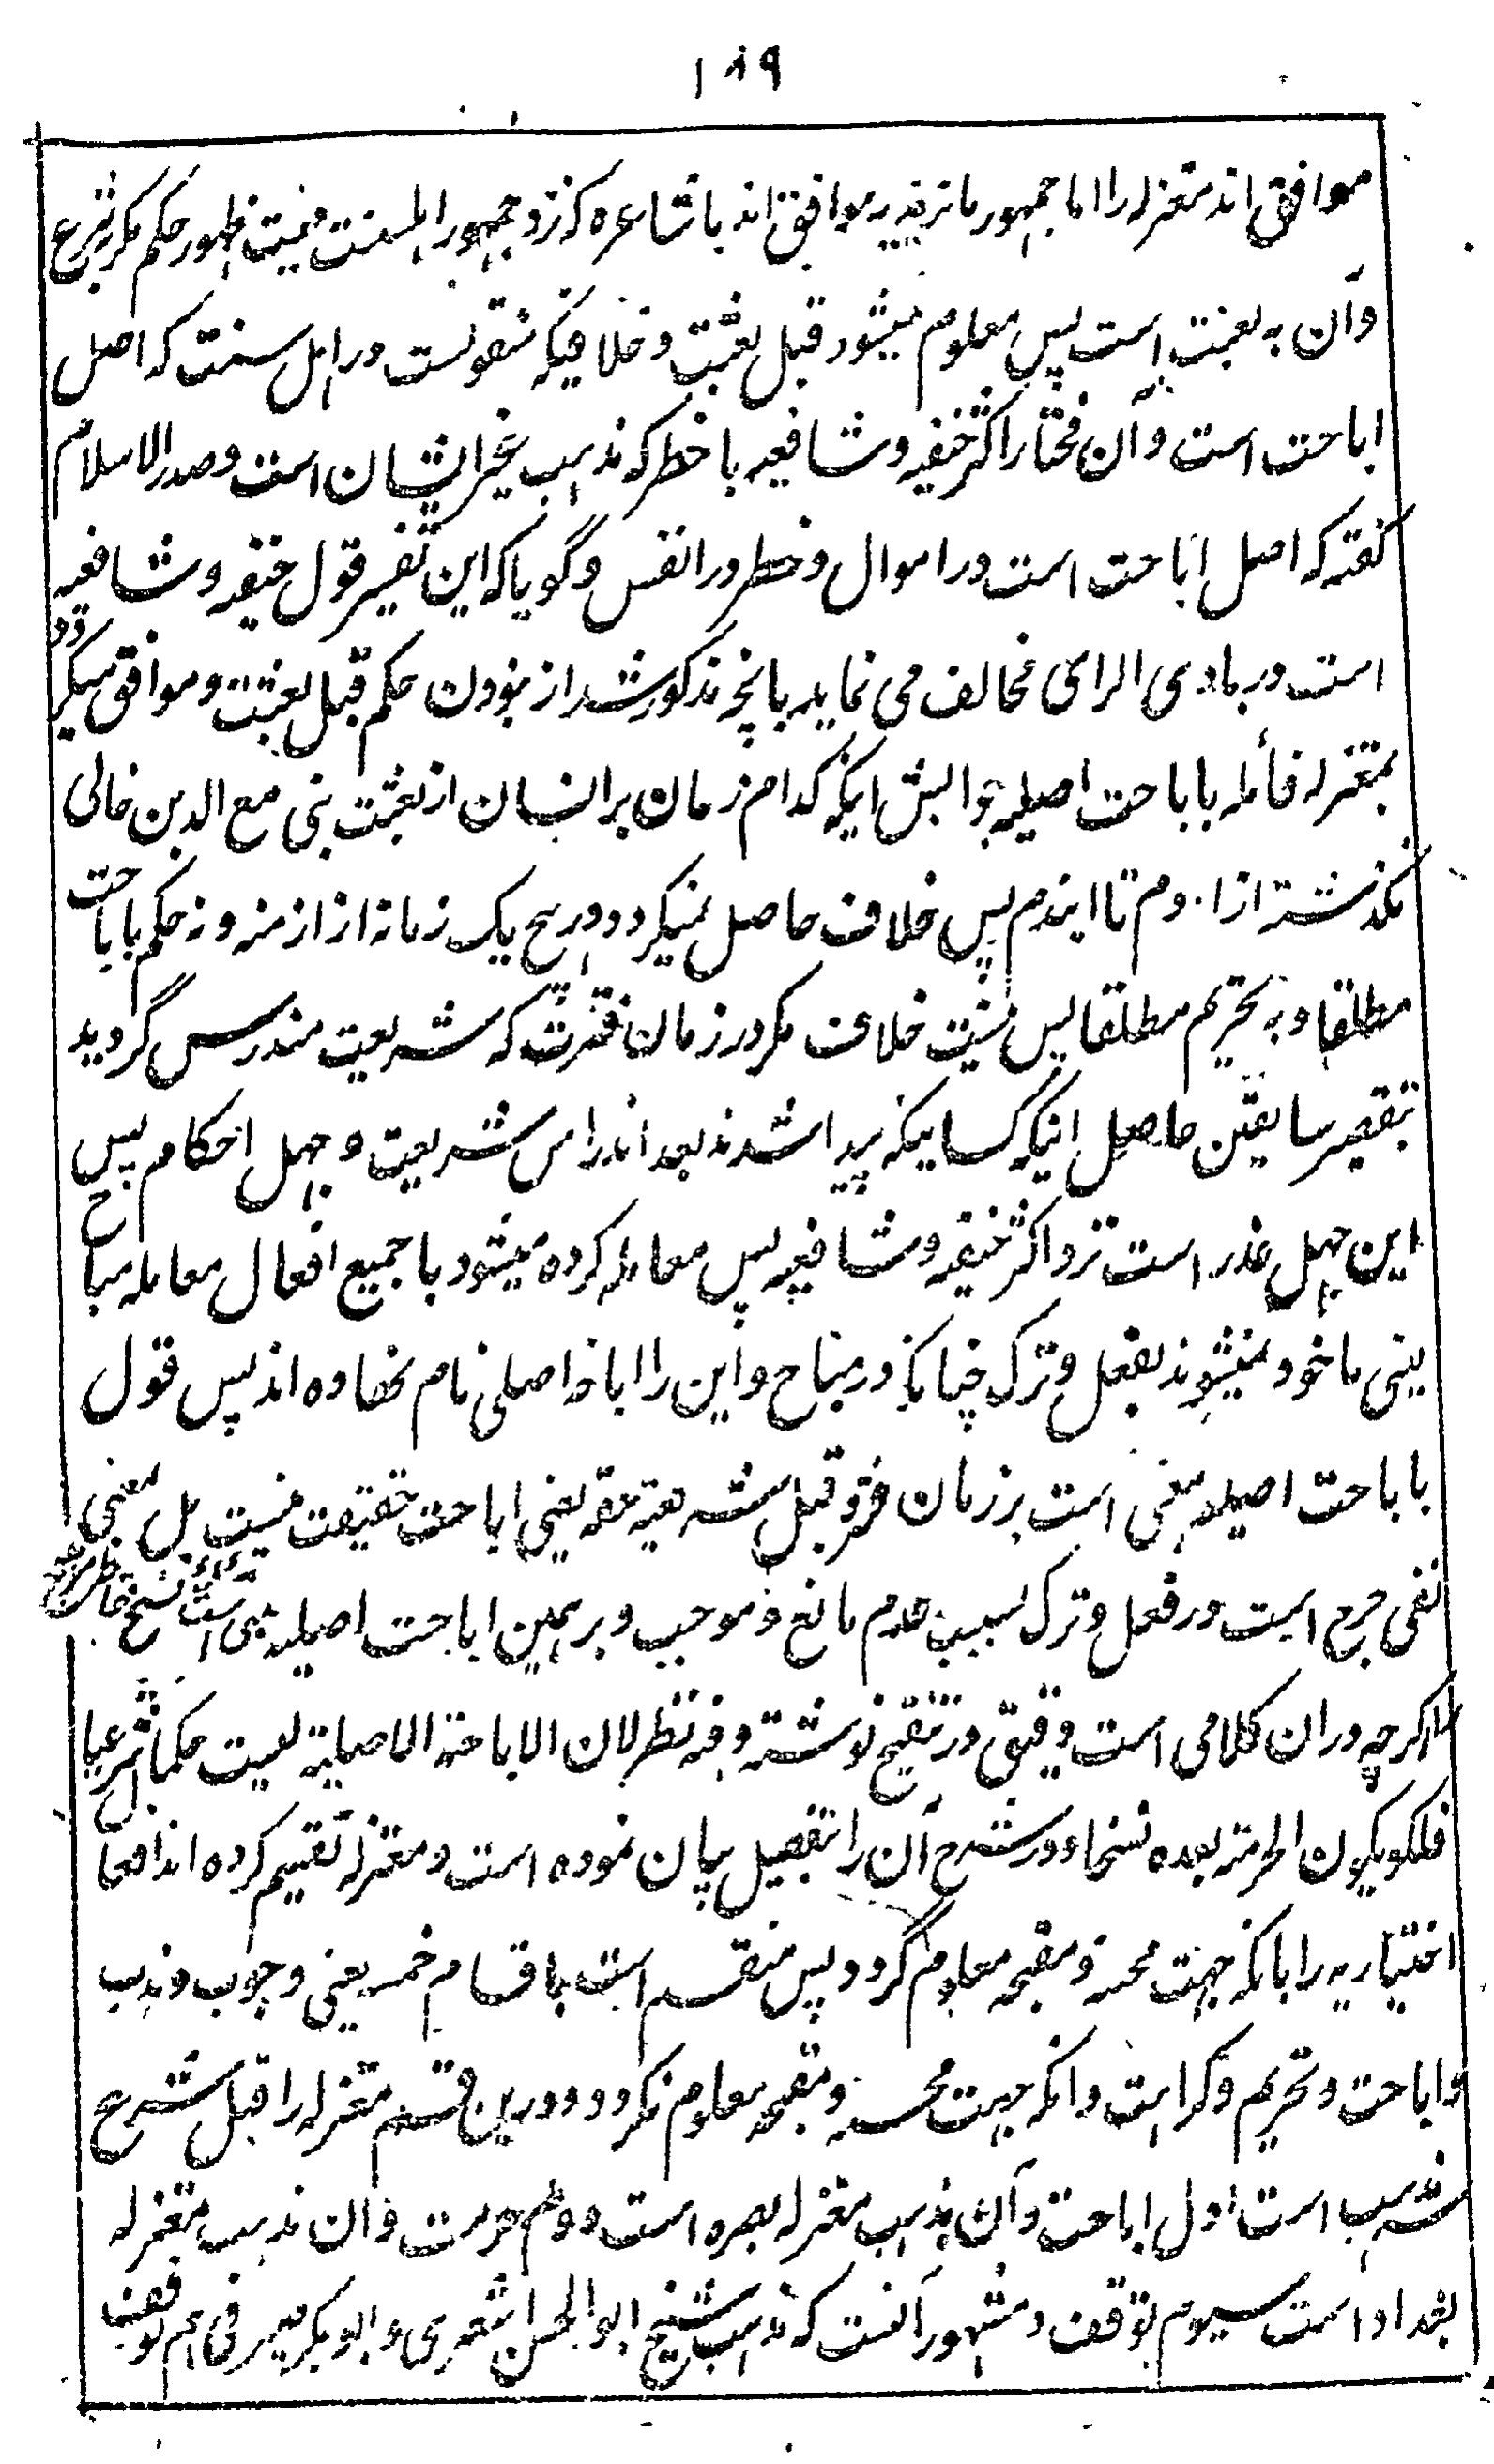 ۱۸۹
موافق اند معتزله را اما جمهور ماتریدیه موافق اند با شاعره که نزد جمهور اہلسنت نیست ظهور حکم مگر بشرع
وآن به بعثت است پس معلوم میشود قبل بعثت و خلافیکه منقولست در اہل سنت که اصل
اباحت است وآن مختار اکثر حنفیه و شافعیه یا خطر که مذہب غیر ایشان است و صدر الاسلام
گفته که اصل اباحت است در اموال و خطر در انفس و گویا که این تفسیر قول حنفیه و شافعیه
است در بادی الرای مخالف می نماید بانچه مذکور شد از نبودن حکم قبل بعثت و موافق میگردد
بمعتزله قائله باباحت اصلیه جوابش اینکه کدام زمان بر انسان از بعثت نبی مع الدین خالی
نگذشته از آدم تا ایندم پس خلاف حاصل نمیگردد در ہیچ یک زمانه از ازمنه و نه حکم باباحت
مطلقا و نه تحریم مطلقا پس نیست خلاف مگر در زمان فترت که شریعت مندرس گردید
بتقصیر سابقین حاصل اینکه کسانیکه پیدا شدند بعد اندراس شریعت و جہل احکام پس
این جہل عذر است نزد اکثر حنفیه و شافعیه پس معامله کرده میشود با جمیع افعال معامله مباح
یعنی ماخوذ نمیشوند بفعل و ترک چنانکه در مباح و این را اباحة اصلی نام نهاده اند پس قول
باباحت اصلیه مبنی است بر زمان فترة قبل شریعته حقه یعنی اباحت حقیقت نیست بل بمعنی
نفی حرج است در فعل و ترک بسبب عدم مانع و موجب و بر ہمین اباحت اصلیه مبنی است نسخ خاطر
اگرچه دران کلامی است دقیق در تنقیح نوشته و فیه نظر لان الاباحة الاصلیة لیست حکما شرعیا
فلایکون الحرمة بعده نسخا و در شرح آن را بتفصیل بیان نموده است و معتزله تقسیم کرده اند افعال
اختیاریه را بانکه جہت محسنه و مقبحه معلوم گردد پس منقسم است باقسام خمسه یعنی وجوب و ندب
واباحت و تحریم و کراہت وانکه جہت محسنه و مقبحه معلوم نگردد و درین قسم معتزله را قبل شرح
سه مذہب است اول اباحت وآن مذہب معتزله بصره است دوم حرمت وان مذہب معتزله
بغداد است سیوم توقف و مشہور آنست که مذہب شیخ ابو الحسن اشعری و ابو بکر صیرفی ہم توقف